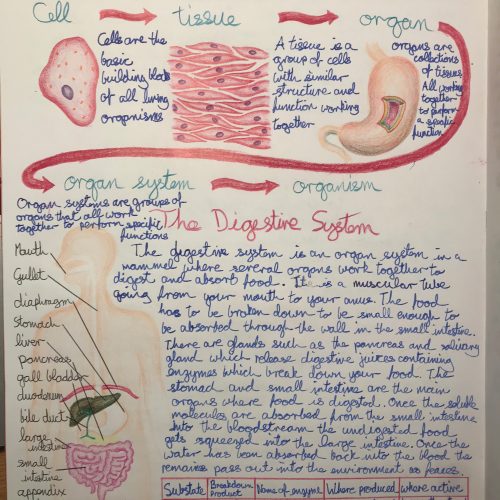 Cell → tissue → organ
Cells are the
basic
building blocks
of all living
organisms
A tissue is a
group of cells
with similar
structure and
function working
together
organs are
collections
of tissues
All working
together
to perform
a specific
function
organ system → organism
Organ systems are groups of
organs that all work
together to perform specific
functions
The Digestive System
Mouth
Gullet
diaphragm
Stomach
liver
pancreas
gall bladder
duodenum
bile duct
large
intestine
small
intestine
appendix
The digestive system is an organ system in a
mammel where several organs work together to
digest and absorb food. It is a muscular tube
going from your mouth to your anus. The food
has to be broken down to be small enough to
be absorbed through the wall in the small intestine.
There are glands such as the pancreas and salivary
gland which release digestive juices containing
enzymes which break down your food. The
stomach and small intestine are the main
organs where food is digested. Once the soluble
molecules are absorbed from the small intestine
into the bloodstream the undigested food
gets squeezed into the large intestine. Once the
water has been absorbed back into the blood the
remains pass out into the environment as feaces.
Substate Breakdown product Name of enzyme Where produced where active